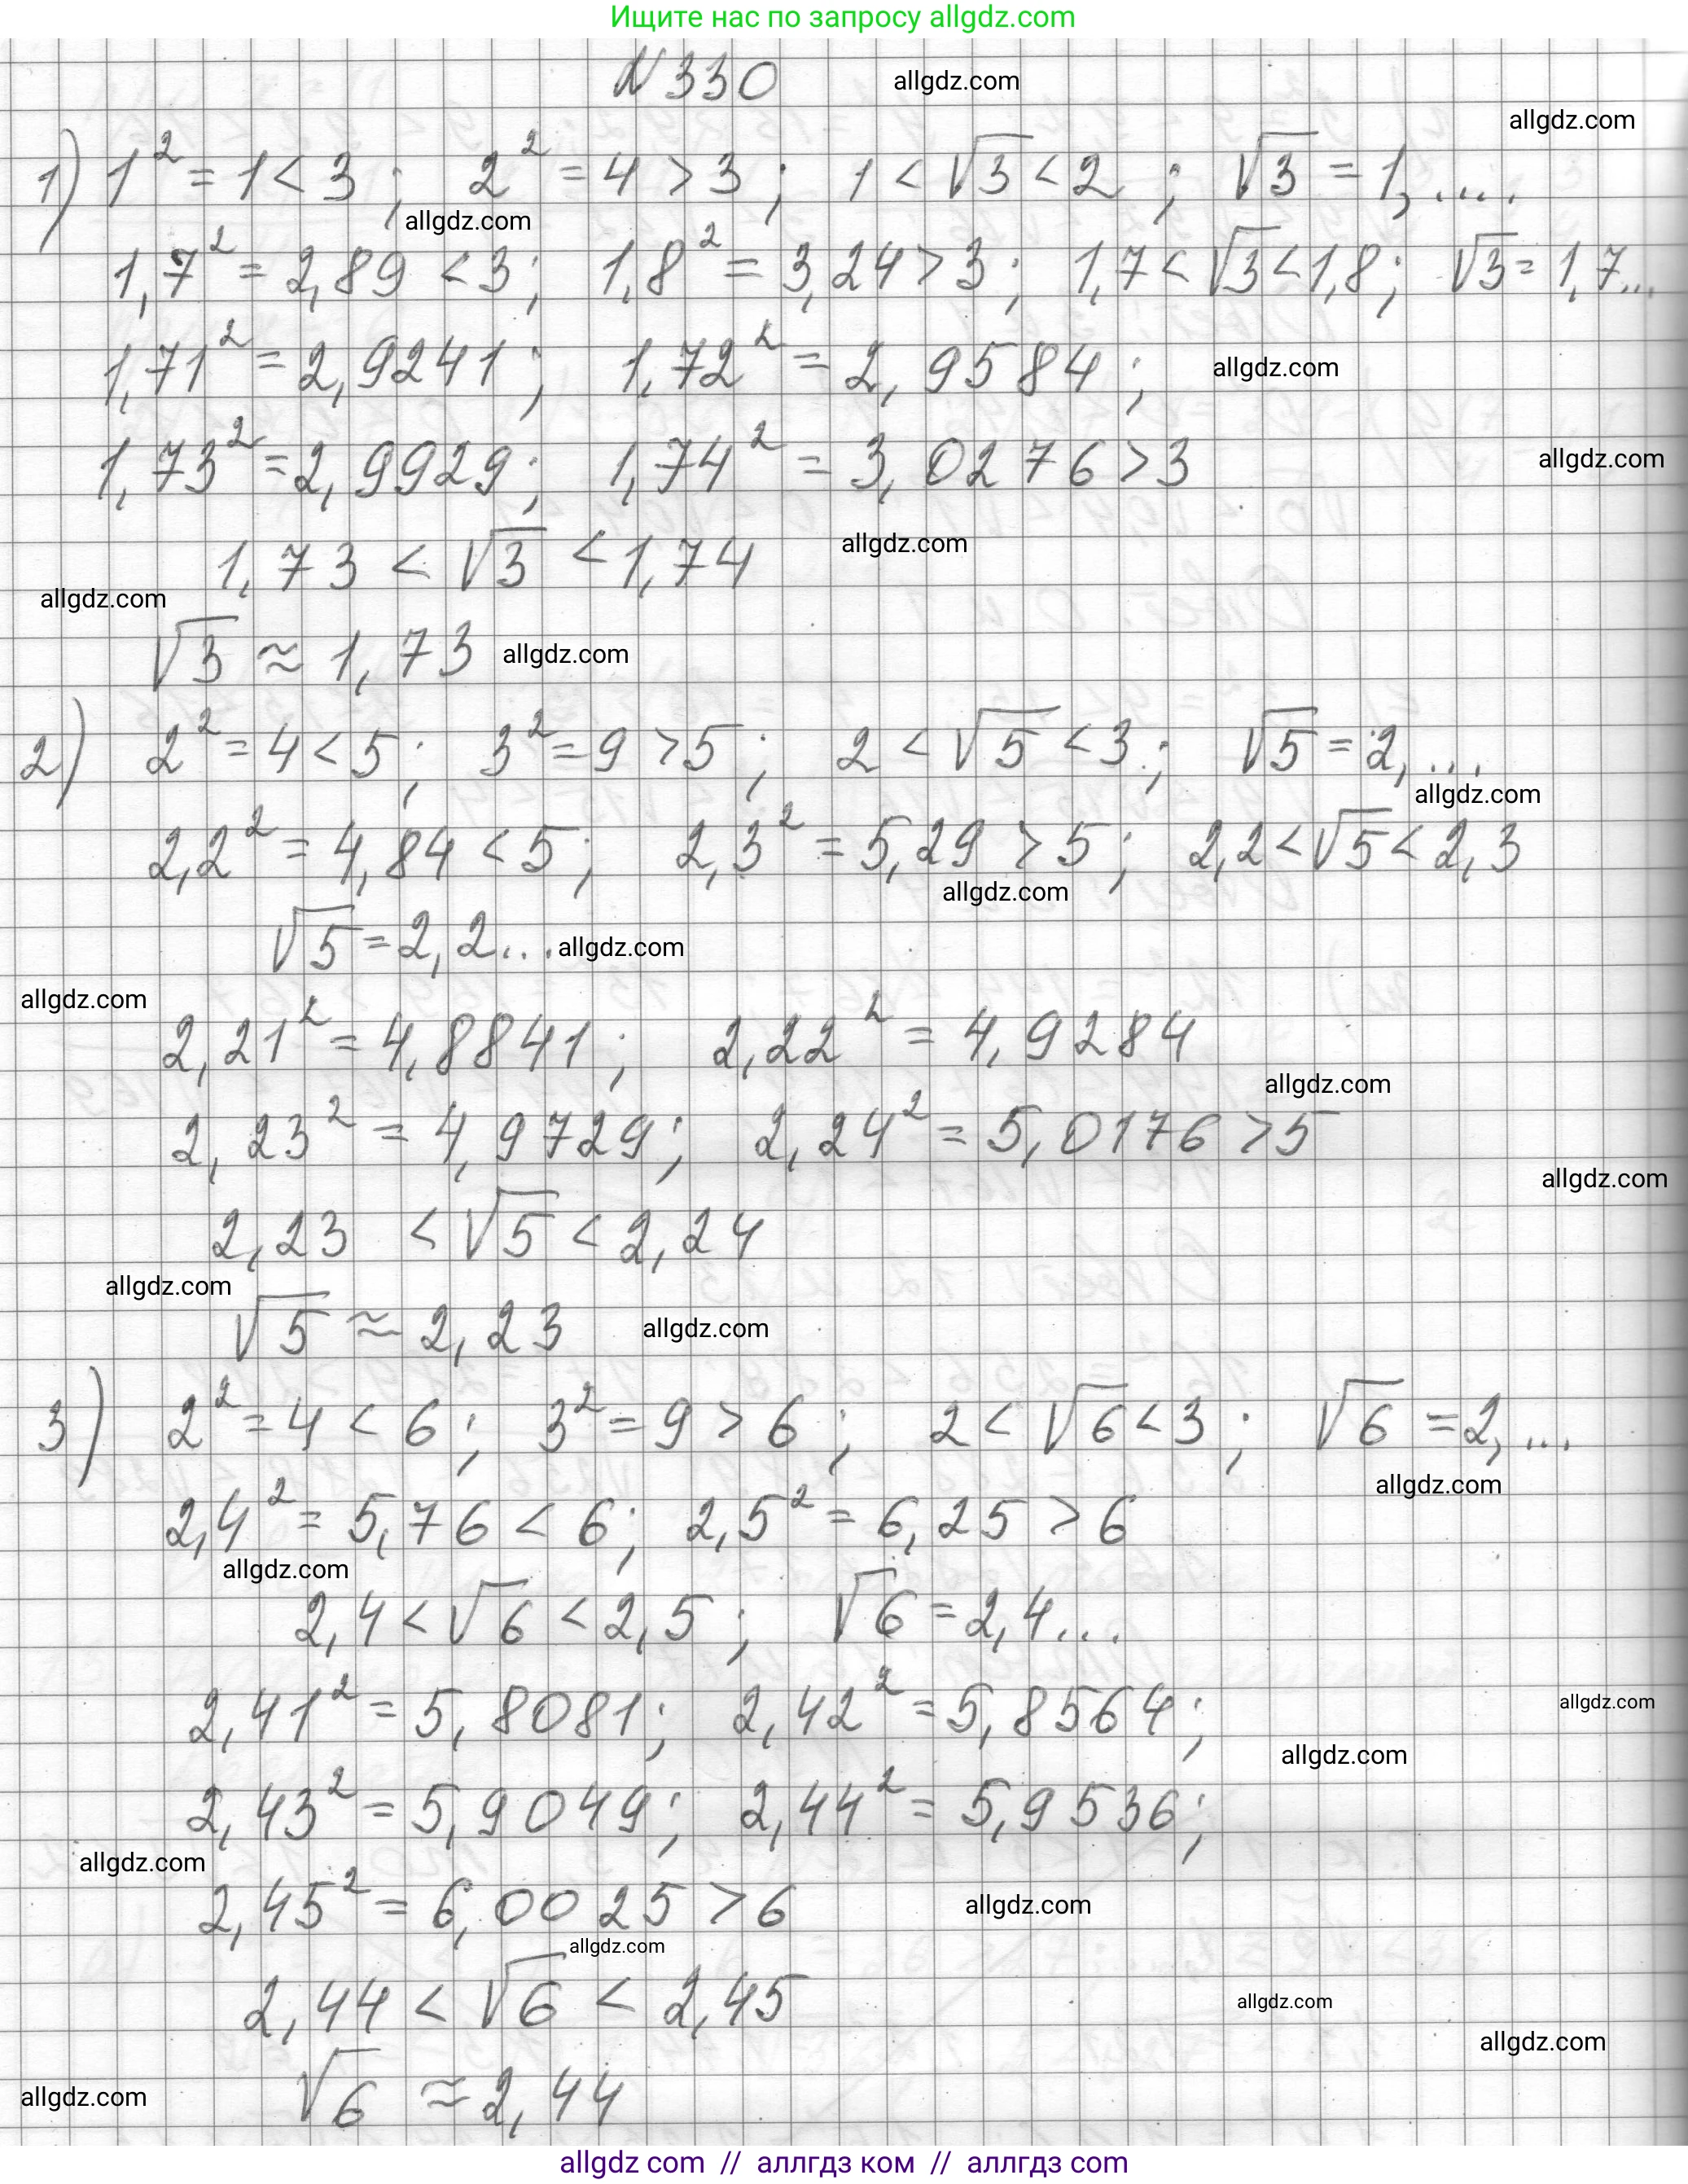 Ищите нас по запросу allgdz.com
N 330 allgdz.com
allgdz.com
1) 1² = 1 < 3 ; 2² = 4 > 3 ; 1 < √3 < 2 ; √3 = 1, ....
allgdz.com
1,7² = 2,89 < 3 ; 1,8² = 3,24 > 3 ; 1,7 < √3 < 1,8 ; √3 = 1,7...
1,71² = 2,9241 ; 1,72² = 2,9584 ; allgdz.com
1,73² = 2,9929 ; 1,74² = 3,0276 > 3 allgdz.com
1,73 < √3 < 1,74 allgdz.com
allgdz.com
√3 ≈ 1,73 allgdz.com
2) 2² = 4 < 5 ; 3² = 9 > 5 ; 2 < √5 < 3 ; √5 = 2, ...
allgdz.com
2,2² = 4,84 < 5 ; 2,3² = 5,29 > 5 ; 2,2 < √5 < 2,3
allgdz.com
√5 = 2,2... allgdz.com
allgdz.com
2,21² = 4,8841 ; 2,22² = 4,9284
allgdz.com
2,23² = 4,9729 ; 2,24² = 5,0176 > 5
allgdz.com
2,23 < √5 < 2,24
allgdz.com
√5 ≈ 2,23 allgdz.com
3) 2² = 4 < 6 ; 3² = 9 > 6 ; 2 < √6 < 3 ; √6 = 2, ...
allgdz.com
2,4² = 5,76 < 6 ; 2,5² = 6,25 > 6
allgdz.com
2,4 < √6 < 2,5 ; √6 = 2,4...
2,41² = 5,8081 ; 2,42² = 5,8564 ; allgdz.com
allgdz.com
2,43² = 5,9049 ; 2,44² = 5,9536 ;
allgdz.com
2,45² = 6,0025 > 6 allgdz.com
allgdz.com
2,44 < √6 < 2,45 allgdz.com
allgdz.com
allgdz.com √6 ≈ 2,44
allgdz com // аллгдз ком // аллгдз com